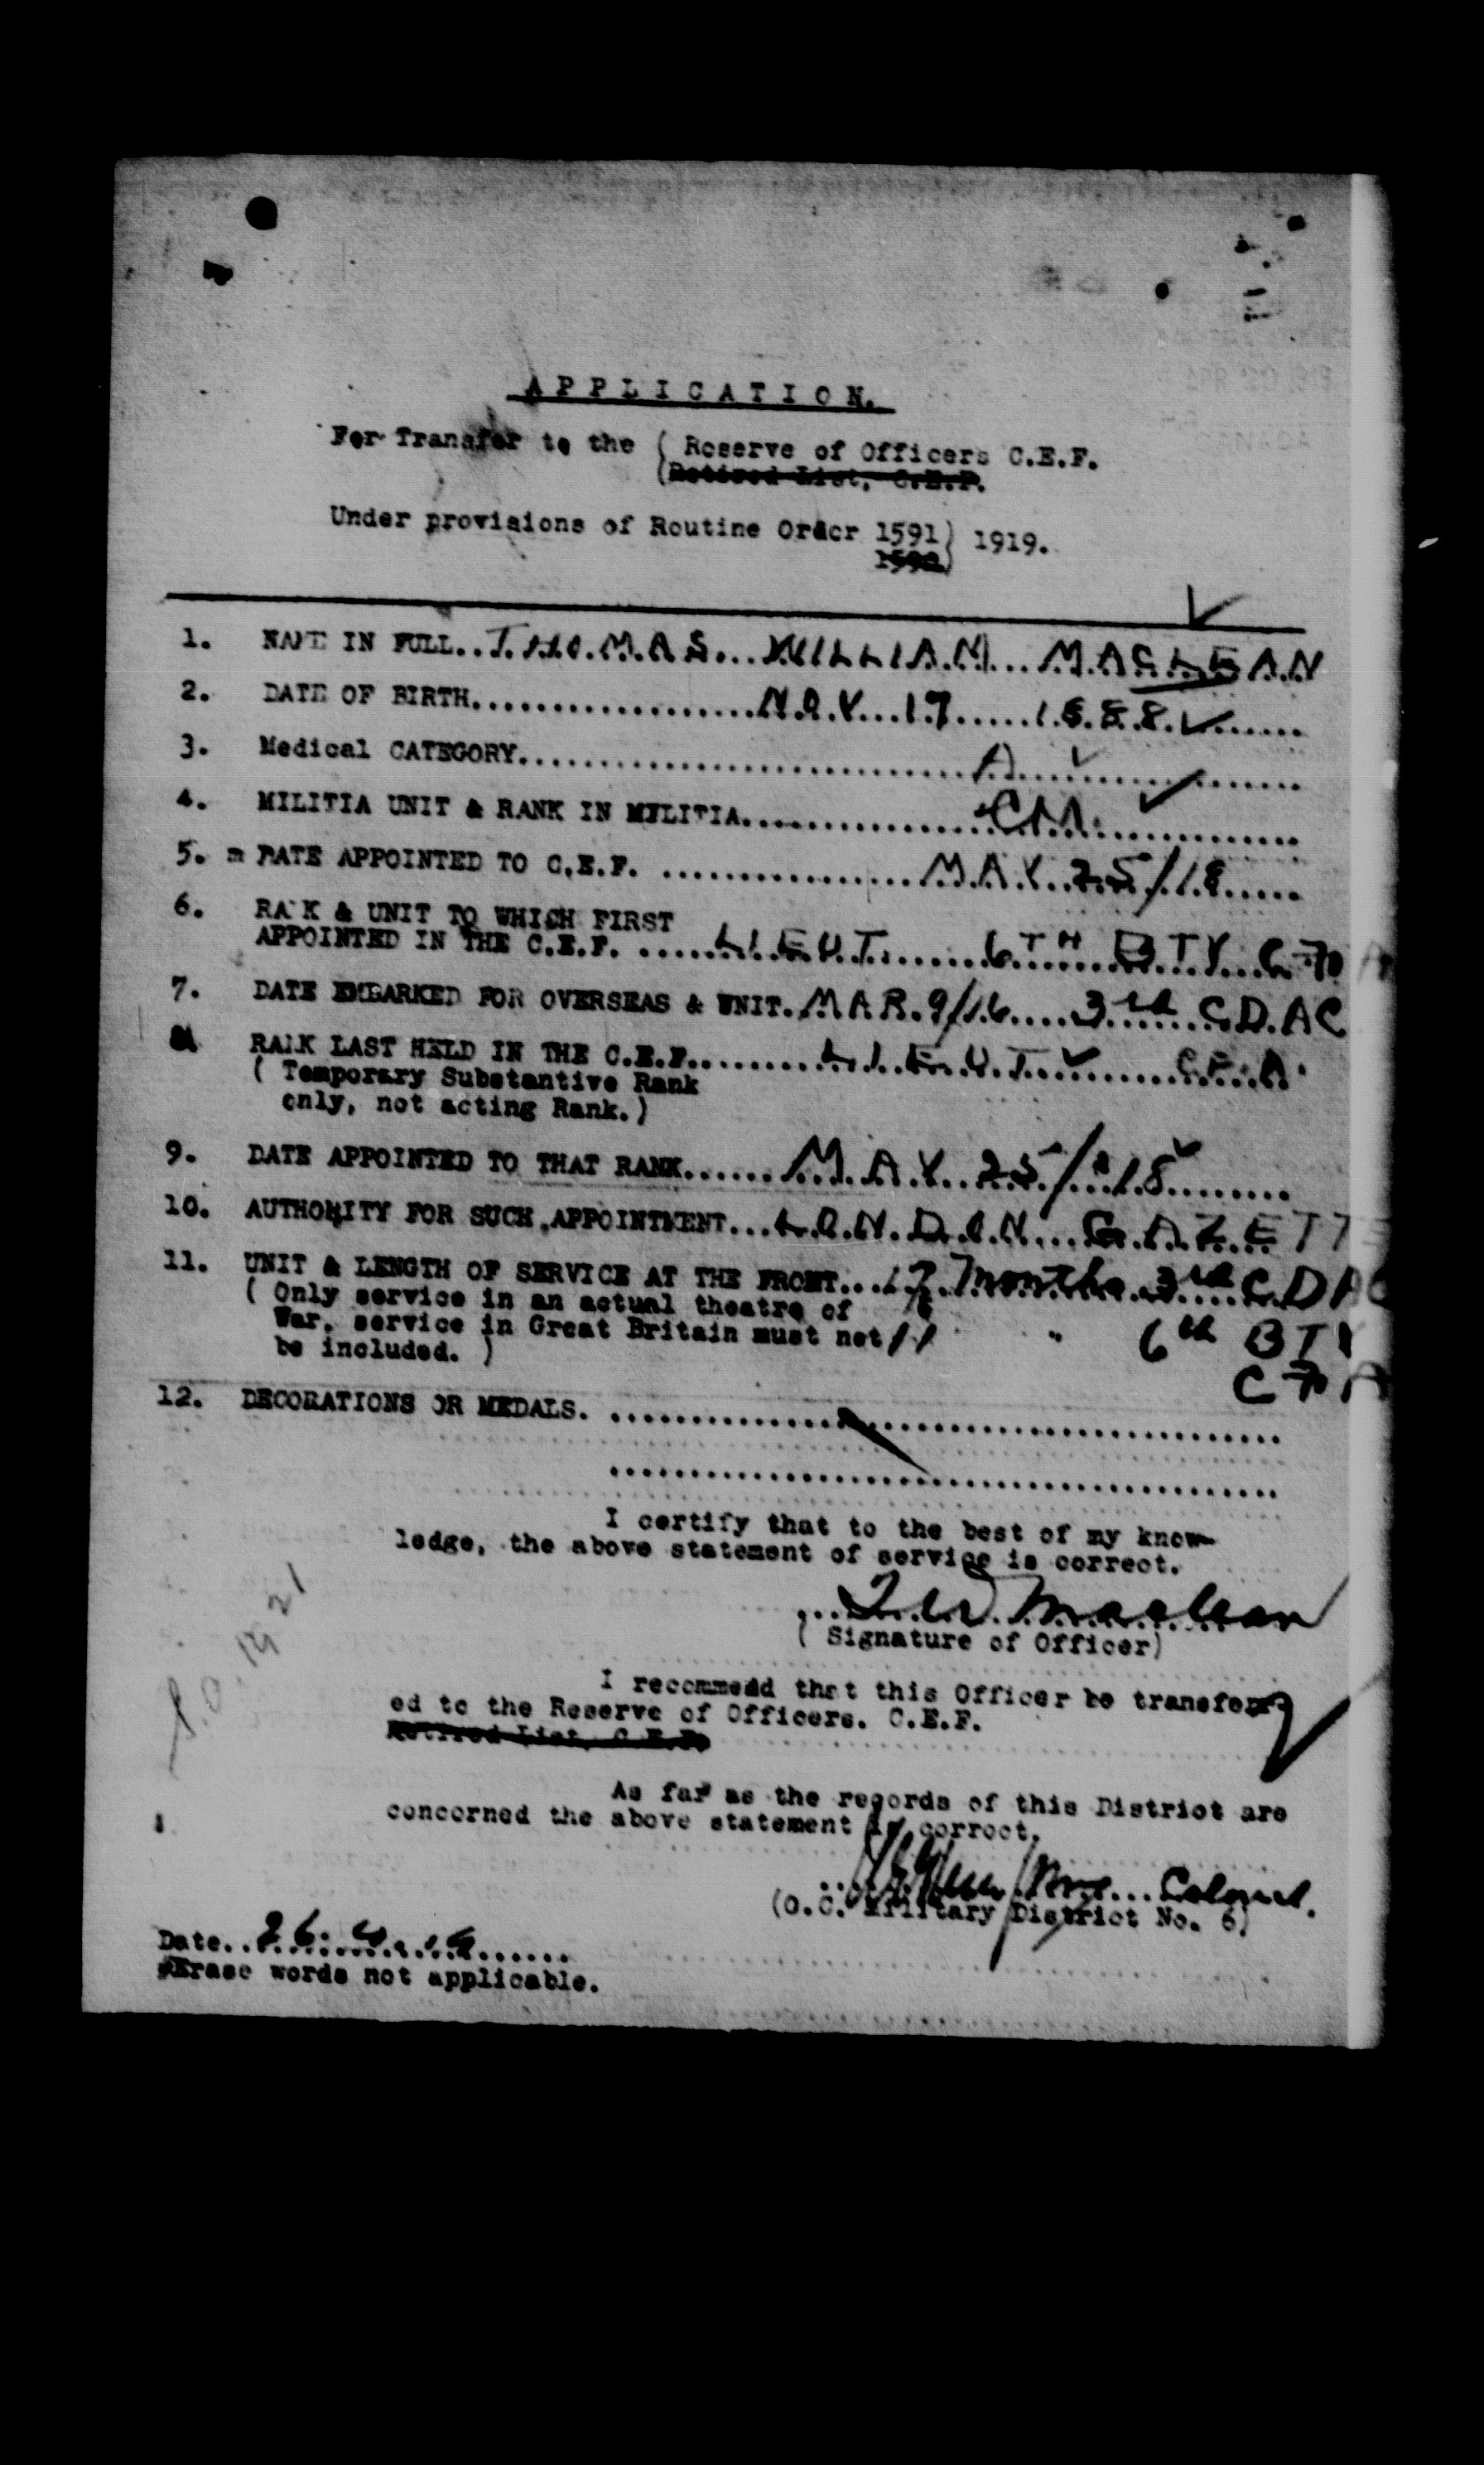 APPLICATION.
For Transfer to the ( Reserve of Officers C.E.F.
(Retired List, C.E.F.
Under provisions of Routine Order 1591) 1919.
1592)
1. NAME IN FULL.. THOMAS WILLIAM MACLEAN
2. DATE OF BIRTH NOV 17 1888
3. Medical CATEGORY A
4. MILITIA UNIT & RANK IN MILITIA C.M.
5. DATE APPOINTED TO C.E.F. MAY 25/18
6. RANK & UNIT TO WHICH FIRST
APPOINTED IN THE C.E.F. LIEUT. 6TH BTY CFA
7. DATE EMBARKED FOR OVERSEAS & UNIT. MAR. 9/16 3rd C.D.A.C
RANK LAST HELD IN THE C.E.F. LIEUT C.F.A.
( Temporary Substantive Rank
only, not acting Rank.)
9. DATE APPOINTED TO THAT RANK MAY 25/18
10. AUTHORITY FOR SUCH APPOINTMENT... LONDON GAZETTE
11. UNIT & LENGTH OF SERVICE AT THE FRONT... months 3rd C.D.A.C
( Only service in an actual theatre of
War, service in Great Britain must not 11 " 6th BTY
be included. ) CFA
12. DECORATIONS OR MEDALS.
I certify that to the best of my know-
ledge, the above statement of service is correct.
T W Maclean
( Signature of Officer)
I recommend that this Officer be transferr-
ed to the Reserve of Officers. C.E.F.
Retired List, C.E.F.
As far as the records of this District are
concerned the above statement is correct.
Colonel.
(O.C. Military District No. 6)
Date.. 26.4.19
*Erase words not applicable.